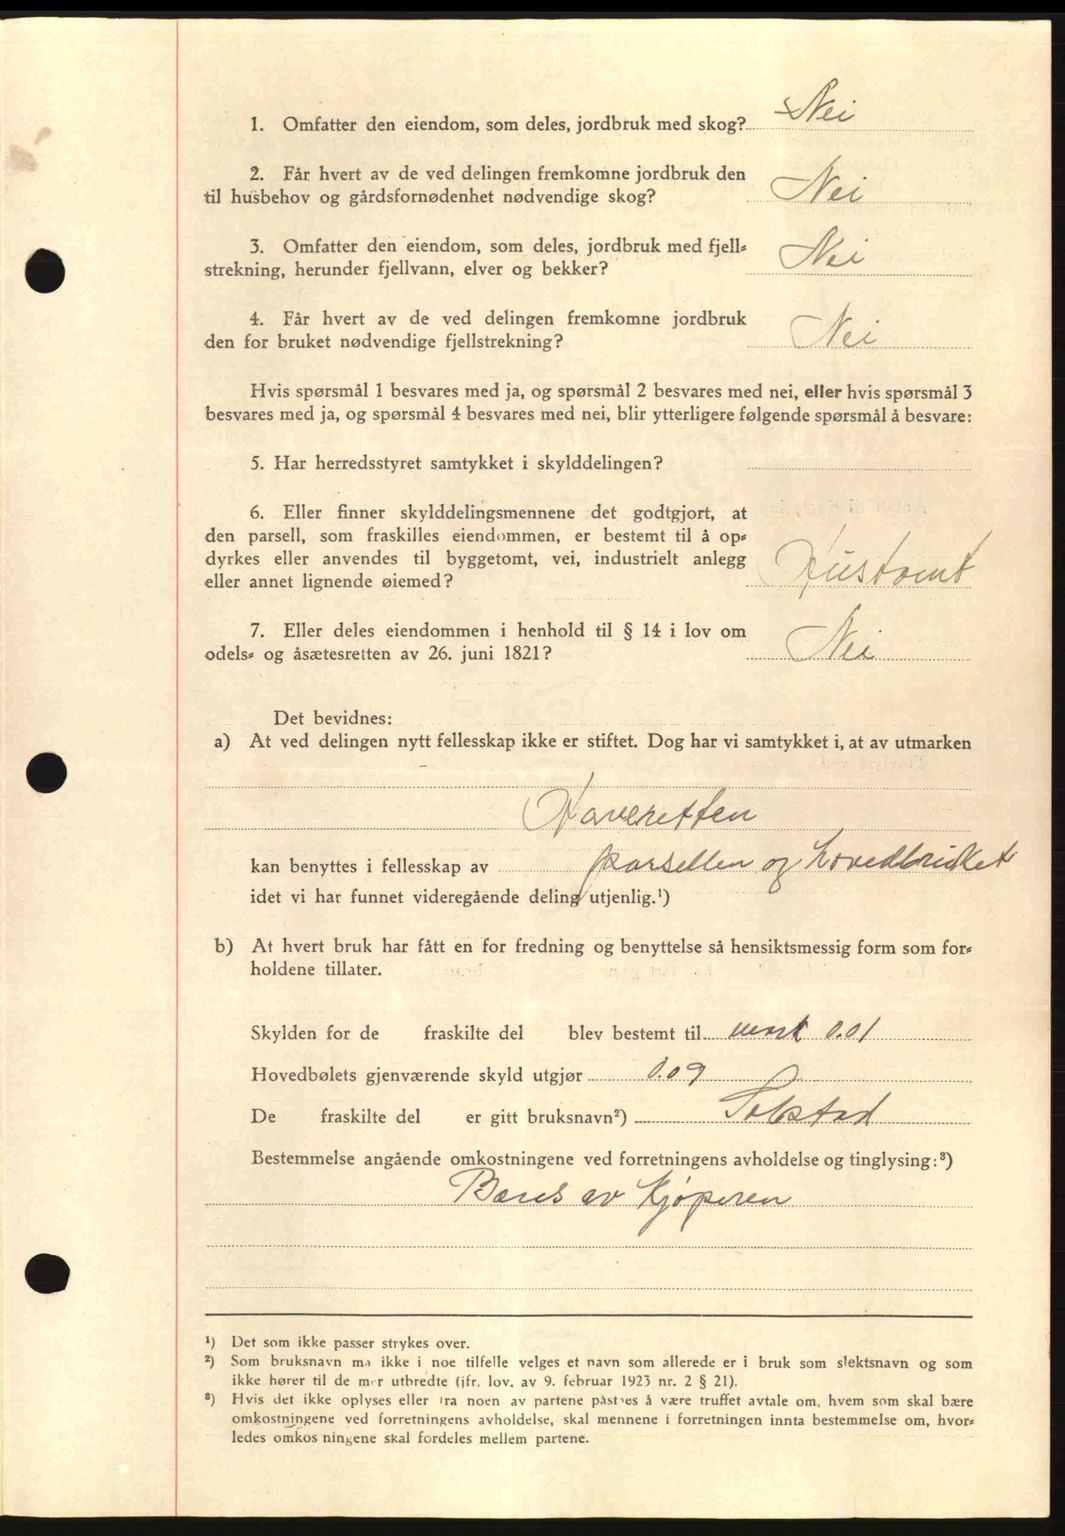 1. Omfatter den eiendom, som deles, jordbruk med skog? Nei
2. Får hvert av de ved delingen fremkomne jordbruk den
til husbehov og gårdsfornødenhet nødvendige skog? Nei
3. Omfatter den eiendom, som deles, jordbruk med fjell-
strekning, herunder fjellvann, elver og bekker? Nei
4. Får hvert av de ved delingen fremkomne jordbruk
den for bruket nødvendige fjellstrekning? Nei
Hvis spørsmål 1 besvares med ja, og spørsmål 2 besvares med nei, eller hvis spørsmål 3
besvares med ja, og spørsmål 4 besvares med nei, blir ytterligere følgende spørsmål å besvare:
5. Har herredsstyret samtykket i skylddelingen?
6. Eller finner skylddelingsmennene det godtgjort, at
den parsell, som fraskilles eiendommen, er bestemt til å op-
dyrkes eller anvendes til byggetomt, vei, industrielt anlegg
eller annet lignende øiemed? Hustomt
7. Eller deles eiendommen i henhold til § 14 i lov om
odels- og åsætesretten av 26. juni 1821? Nei
Det bevidnes:
a) At ved delingen nytt fellesskap ikke er stiftet. Dog har vi samtykket i, at av utmarken
Havneretten
kan benyttes i fellesskap av parsellen og hovedbruket
idet vi har funnet videregående deling utjenlig.¹)
b) At hvert bruk har fått en for fredning og benyttelse så hensiktsmessig form som for-
holdene tillater.
Skylden for de fraskilte del blev bestemt til mark 0.01
Hovedbølets gjenværende skyld utgjør 0.09
De fraskilte del er gitt bruksnavn²) Solstad
Bestemmelse angående omkostningene ved forretningens avholdelse og tinglysing:³)
Bæres av Kjøperen
¹) Det som ikke passer strykes over.
²) Som bruksnavn må ikke i noe tilfelle velges et navn som allerede er i bruk som slektsnavn og som
ikke hører til de mer utbredte (jfr. lov. av 9. februar 1923 nr. 2 § 21).
³) Hvis det ikke oplyses eller fra noen av partene påståes å være truffet avtale om, hvem som skal bære
omkostningene ved forretningens avholdelse, skal mennene i forretningen innta bestemmelse om, hvor-
ledes omkostningene skal fordeles mellem partene.